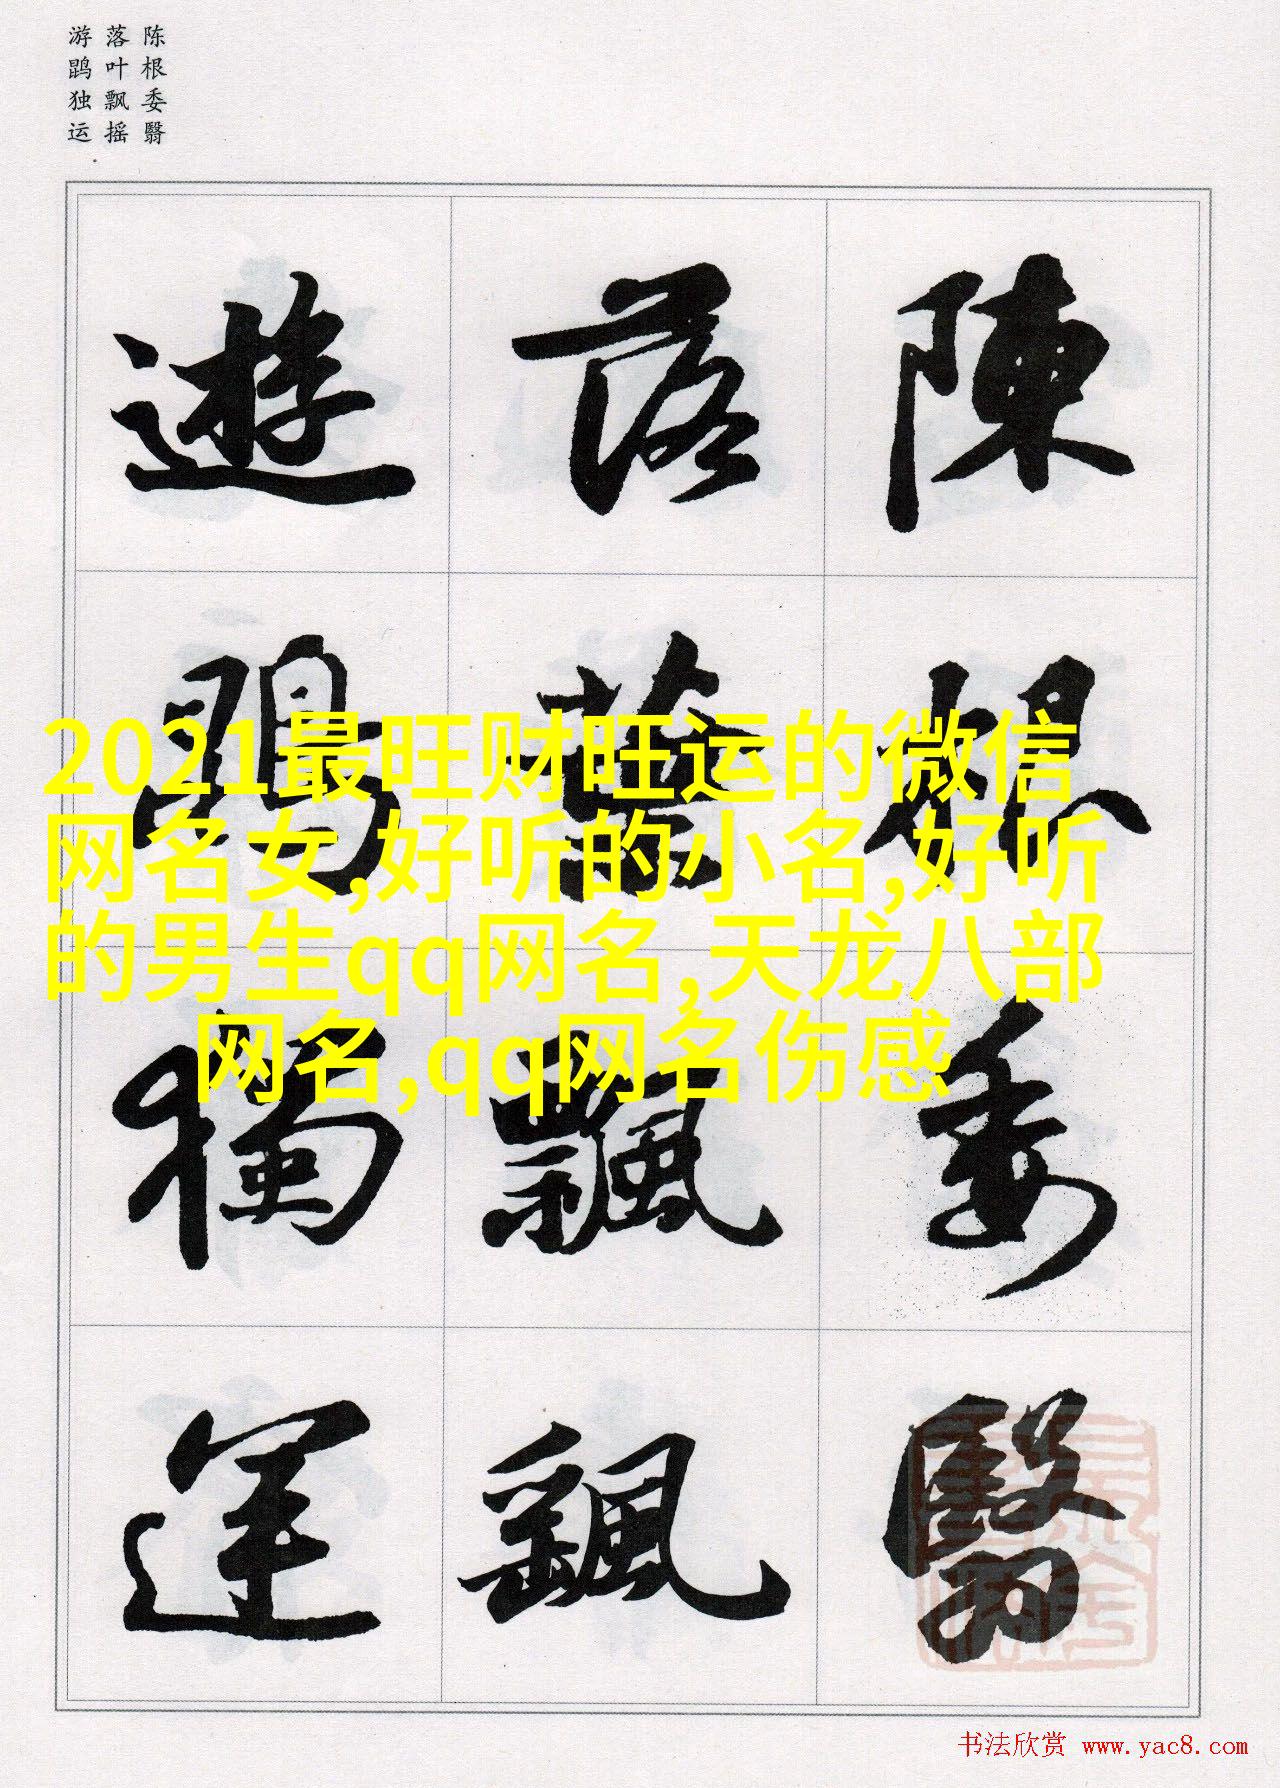 陈根委翳
落叶飘摇
游鹍独运
陳根委翳
落葉飄颻
遊鵾獨運
2021最旺财旺运的微信
网名女,好听的小名,好听
的男生qq网名,天龙八部
网名,qq网名伤感
书法欣赏 www.yac8.com